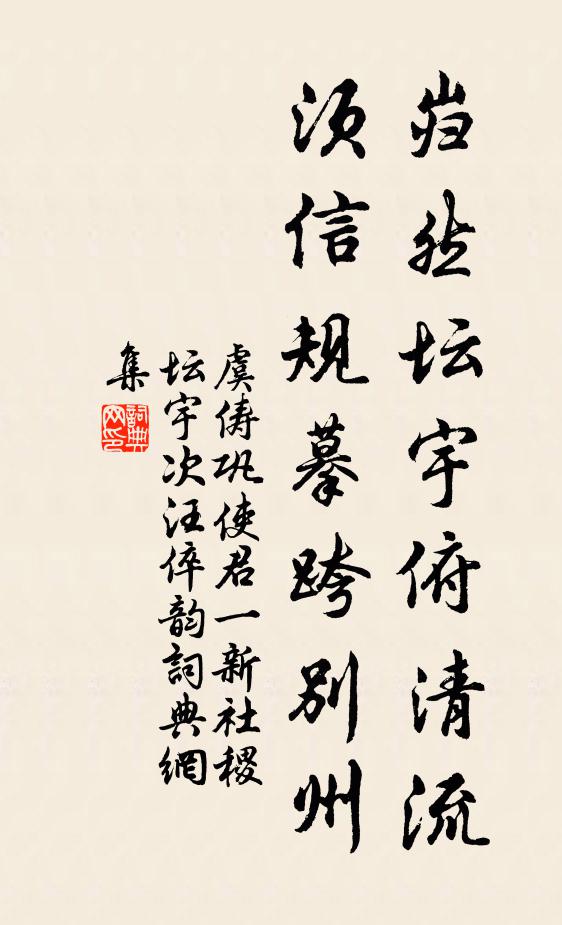 岿然坛宇俯清流
须信规摹跨别州
虞俦巩使君一新社稷
坛宇次汪倅韵詞典網
集
詞典网印